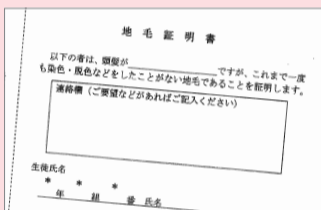 地毛証明書
以下の者は、頭髪が＿＿＿＿＿＿＿＿ですが、これまで一度
も染色・脱色などをしたことがない地毛であることを証明します。
連絡欄（ご要望などがあればご記入ください）
生徒氏名
＊　＊　＊
年　組　番　氏名